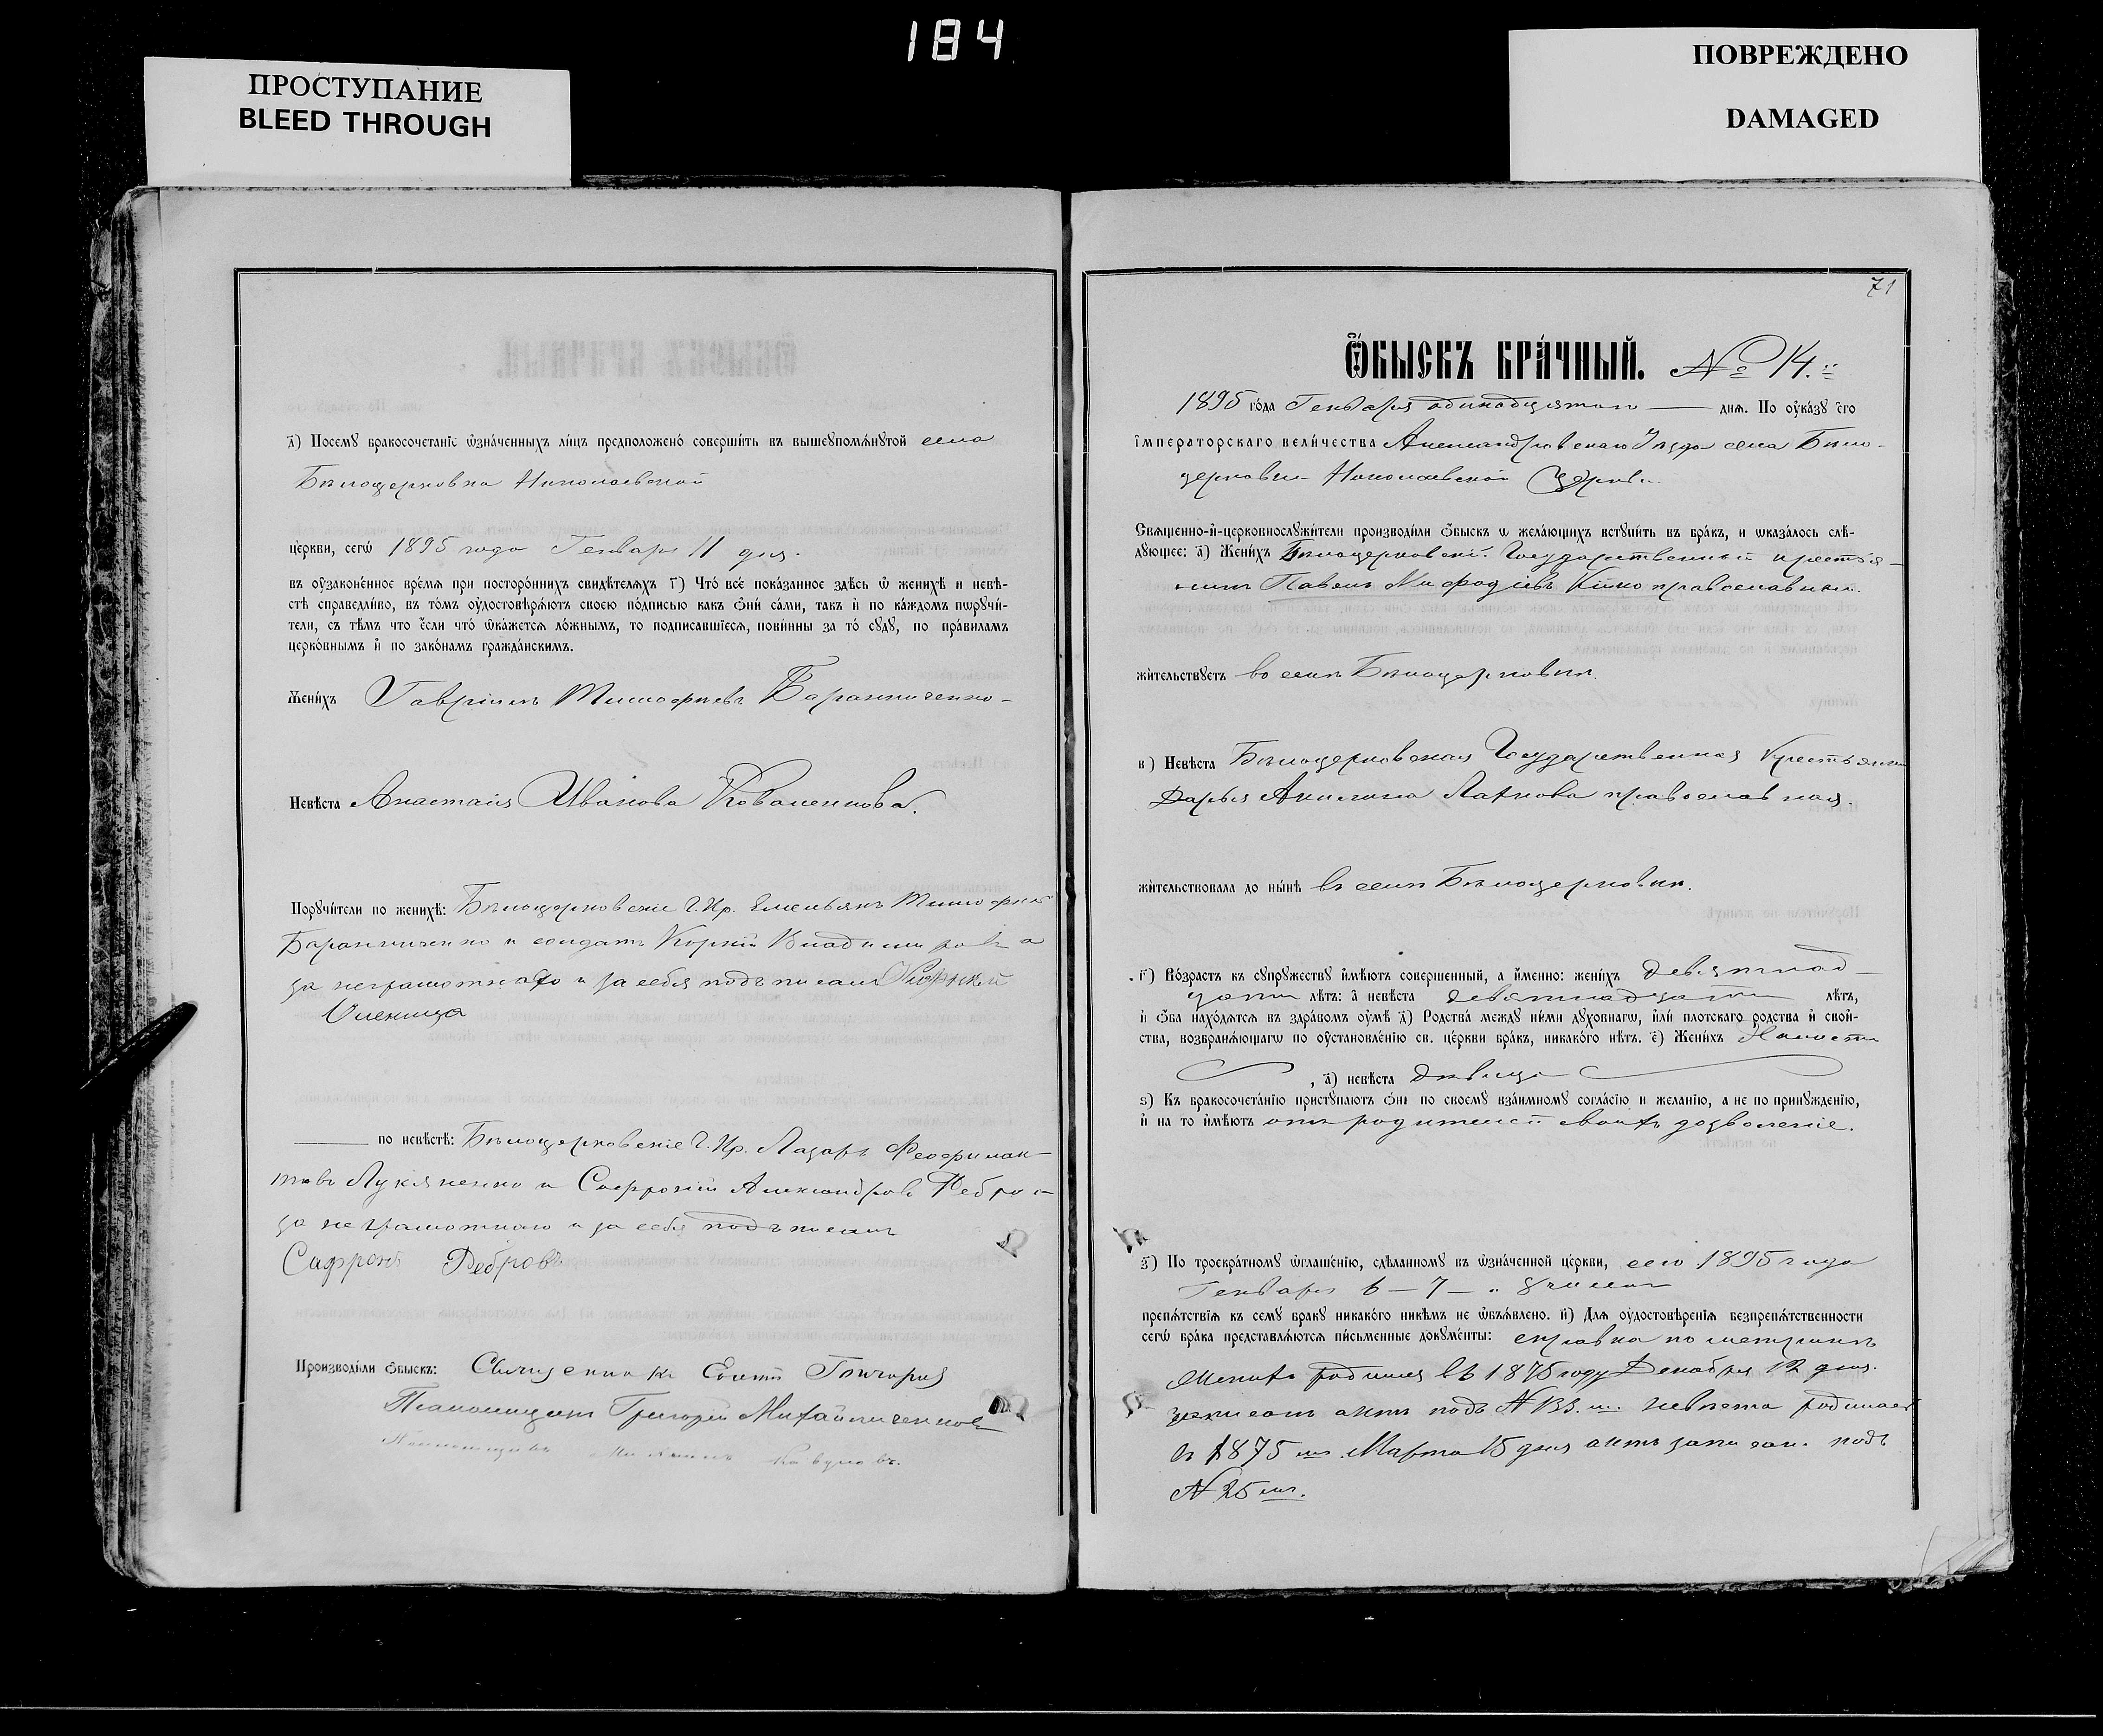 184
ПРОСТУПАНИЕ
BLEED THROUGH
ПОВРЕЖДЕНО
DAMAGED
д҃) Посемꙋ бракосочетаніе ѡзначенныхъ лицъ предположено совершить въ вышеꙋпомѧнꙋтой села
Бѣлоцерковка Николаевской
церкви, сегѡ 1895 года Генваря 11 дня.
въ оузаконенное времѧ при постороннихъ свидѣтелѧхъ г҃) Что все показанное здѣсь ѿ женихѣ и невѣ-
стѣ справедливо, въ томъ оудостовѣрѧютъ своею подписью какъ ѻни сами, так и по каждомъ пѡрꙋчи-
тели, съ тѣмъ что если что ѿкажетсѧ ложнымъ, то подписавшіесѧ, повинны за то сꙋдꙋ, по правиламъ
церковнымъ и по законамъ гражданскимъ.
Женихъ Гавріилъ Тимофѣевъ Баранниченко
Невѣста Анастасія Иванова Коваленкова.
Порꙋчители по женихѣ: Бѣлоцерковскіе Г. Кр. Емельянъ Тимофѣев
Баранниченко и солдатъ Корній Владимировъ а
за неграмотнаго и за себя подъписалъ
по невѣстѣ: Бѣлоцерковскіе Г. Кр. Лазарь Феофилак-
товъ Лукяненко и Софроній Александровъ Ребро а
за неграмотнаго и за себя подъписалъ
Сафронъ Ребровъ
Производили ѻбыскъ: Священникъ
Псаломщикъ Григорій Михайличенковъ
71
Ѻбыскъ брачный. № 14.й
1895 года Генваря одинадцятого днѧ. По оуказꙋ его
императорскаго величества Александровскаго Уѣзда села Бѣло-
церковки Николаевской Церкви
Свѧщенно-и-церковнослꙋжители производили ѻбыскъ ѡ желающихъ вступить въ бракъ, и ѡказалось слѣ-
дꙋющее: а҃) Женихъ Бѣлоцерковскій Государственный крестья-
нинъ Павелъ Мифодіевъ Кійко православный.
жительствꙋетъ во селѣ Бѣлоцерковкѣ.
в) Невѣста Бѣлоцерковская Государственная Крестьянка
Дарья Акилина Латкова православная.
жительствовала до нынѣ въ селѣ Бѣлоцерковкѣ.
г҃) Возрастъ къ сꙋпрꙋжествꙋ имѣютъ совершенный, а именно: женихъ девятнад-
цати лѣтъ: а невѣста девятнадцати лѣтъ,
и ѻба находѧтсѧ въ здравомъ оумѣ д҃) Родства междꙋ ними дꙋховнагѡ, или плотскаго родства и свой-
ства, возбранѧющагѡ по оустановленію св. церкви бракъ, никакого нѣтъ. е҃) Женихъ Холостъ
, а҃) невѣста Дѣвица
ѕ) Къ бракосочетанію пристꙋпаютъ ѻни по своемꙋ взаимномꙋ согласію и желанію, а не по принꙋжденію,
и на то имѣютъ отъ родителей своихъ дозволеніе.
з҃) По троекратномꙋ ѡглашенію, сдѣланномꙋ въ ѡзначенной церкви, сего 1895 года
Генваря 6 – 7 – и 8 числа
препѧтствіѧ къ семꙋ бракꙋ никакого никѣмъ не ѡбъѧвлено. и҃) Длѧ оудостовѣреніѧ безпрепѧтственности
сегѡ брака представлѧютсѧ письменные докꙋменты: справка по метрикѣ
Женихъ родился въ 1875 году Декабря 12 дня.
записанъ актъ подъ № 133.мъ. невѣста родилась
въ 1875 мъ Марта 15 дня актъ записан. подъ
№ 25 мъ.